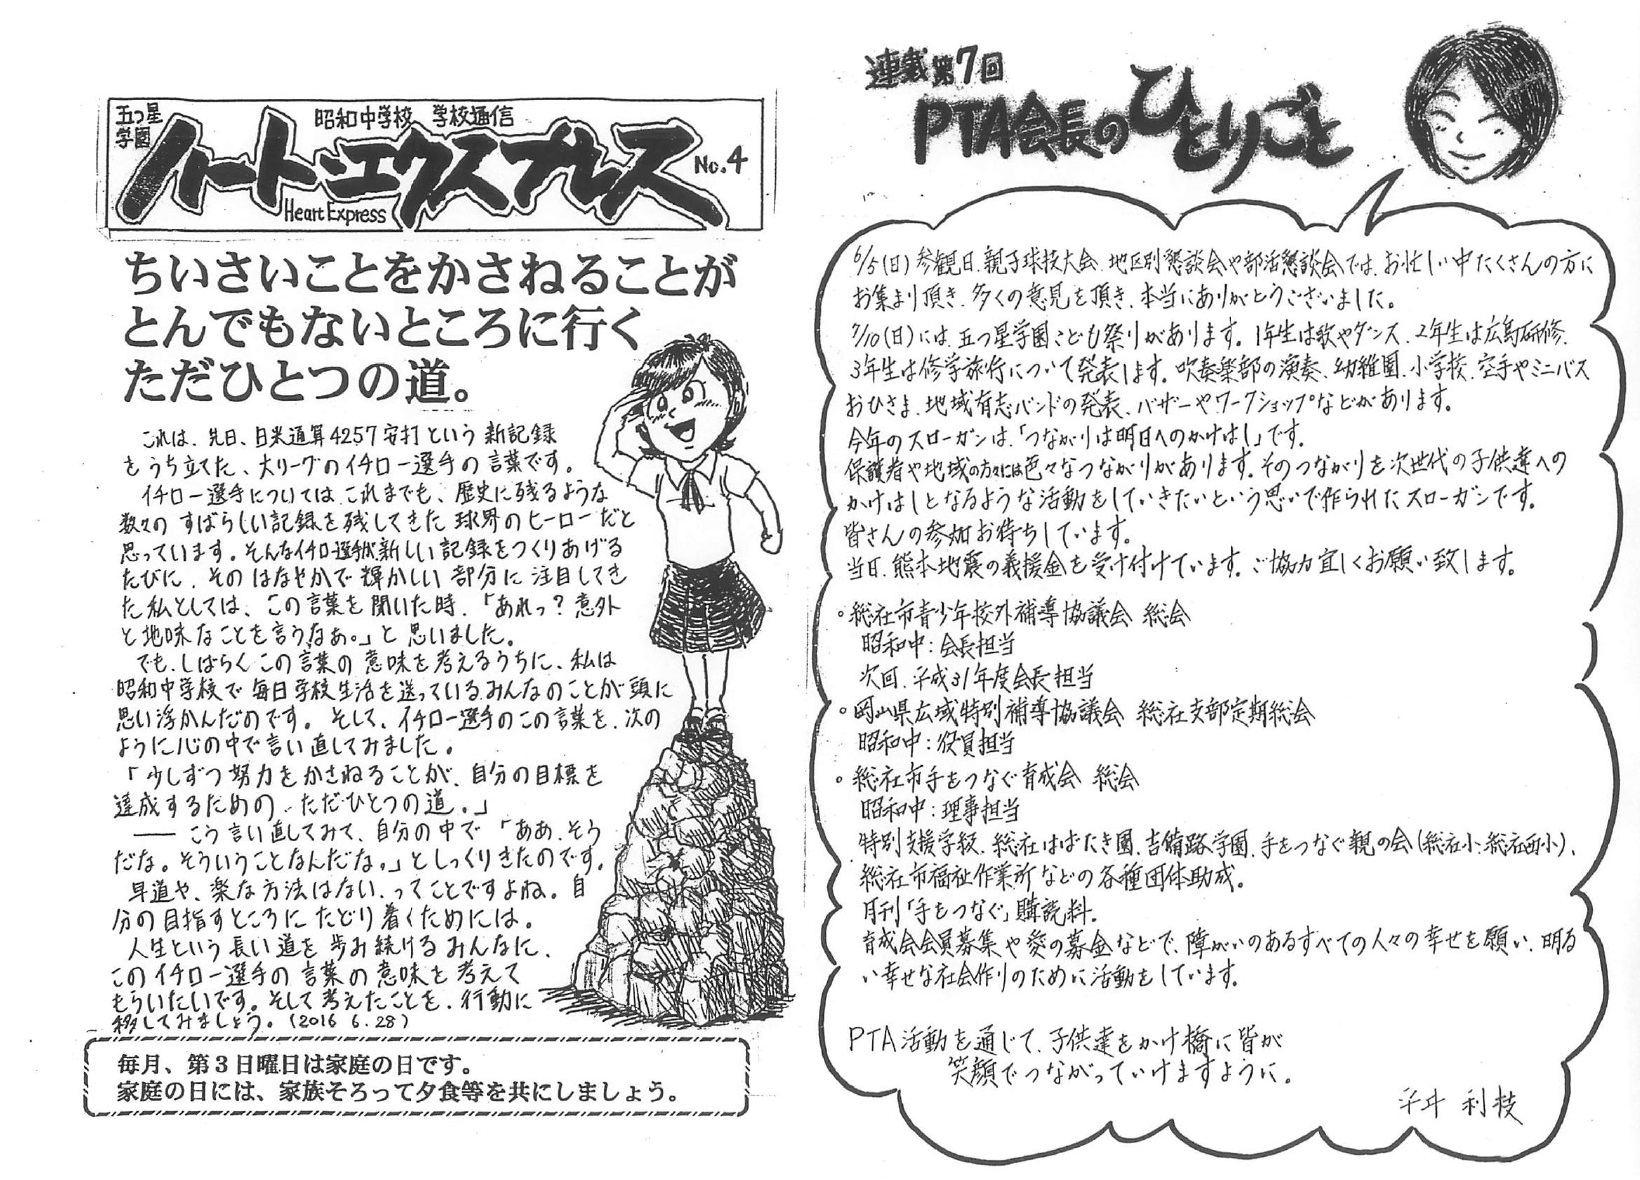 五つ星
学園
昭和中学校 学校通信
ハート・エクスプレス
Heart Express
No.4
ちいさいことをかさねることが
とんでもないところに行く
ただひとつの道。
これは、先日、日米通算4257安打という新記録
をうち立てた、大リーグのイチロー選手の言葉です。
イチロー選手については、これまでも、歴史に残るような
数々のすばらしい記録を残してきた球界のヒーローだと
思っています。そんなイチロー選手が新しい記録をつくりあげる
たびに、そのはなやかで輝かしい部分に注目してき
た私としては、この言葉を聞いた時、「あれっ？意外
と地味なことを言うなあ。」と思いました。
でも、しばらくこの言葉の意味を考えるうちに、私は
昭和中学校で毎日学校生活を送っているみんなのことが頭に
思い浮かんだのです。そして、イチロー選手のこの言葉を、次の
ように心の中で言い直してみました。
「少しずつ努力をかさねることが、自分の目標を
達成するための、ただひとつの道。」
――こう言い直してみて、自分の中で「ああ、そう
だな。そういうことなんだな。」としっくりきたのです。
早道や、楽な方法はない、ってことですよね。自
分の目指すところにたどり着くためには。
人生という長い道を歩み続けるみんなに、
このイチロー選手の言葉の意味を考えて
もらいたいです。そして考えたことを、行動に
移してみましょう。(2016 6.28)
毎月、第３日曜日は家庭の日です。
家庭の日には、家族そろって夕食等を共にしましょう。
連載第7回
PTA会長のひとりごと
6/5(日)参観日、親子球技大会、地区別懇談会や部活懇談会では、お忙しい中たくさんの方に
お集まり頂き、多くの意見を頂き、本当にありがとうございました。
7/10(日)には、五つ星学園こども祭りがあります。1年生は歌やダンス、2年生は広島研修、
3年生は修学旅行について発表します。吹奏楽部の演奏、幼稚園、小学校、空手やミニバス
おひさま、地域有志バンドの発表、バザーやワークショップなどがあります。
今年のスローガンは、「つながりは明日へのかけはし」です。
保護者や地域の方々には色々なつながりがあります。そのつながりを次世代の子供達への
かけはしとなるような活動をしていきたいという思いで作られたスローガンです。
皆さんの参加お待ちしています。
当日、熊本地震の義援金を受け付けています。ご協力宜しくお願い致します。
◦総社市青少年校外補導協議会 総会
昭和中：会長担当
次回、平成31年度会長担当
◦岡山県広域特別補導協議会 総社支部定期総会
昭和中：役員担当
◦総社市手をつなぐ育成会 総会
昭和中：理事担当
特別支援学級、総社はばたき園、吉備路学園、手をつなぐ親の会(総社小、総社西小)、
総社市福祉作業所などの各種団体助成。
月刊「手をつなぐ」購読料。
育成会会員募集や愛の募金などで、障がいのあるすべての人々の幸せを願い、明る
い幸せな社会作りのために活動をしています。
PTA活動を通じて、子供達をかけ橋に皆が
笑顔でつながっていけますように。
平井 利枝